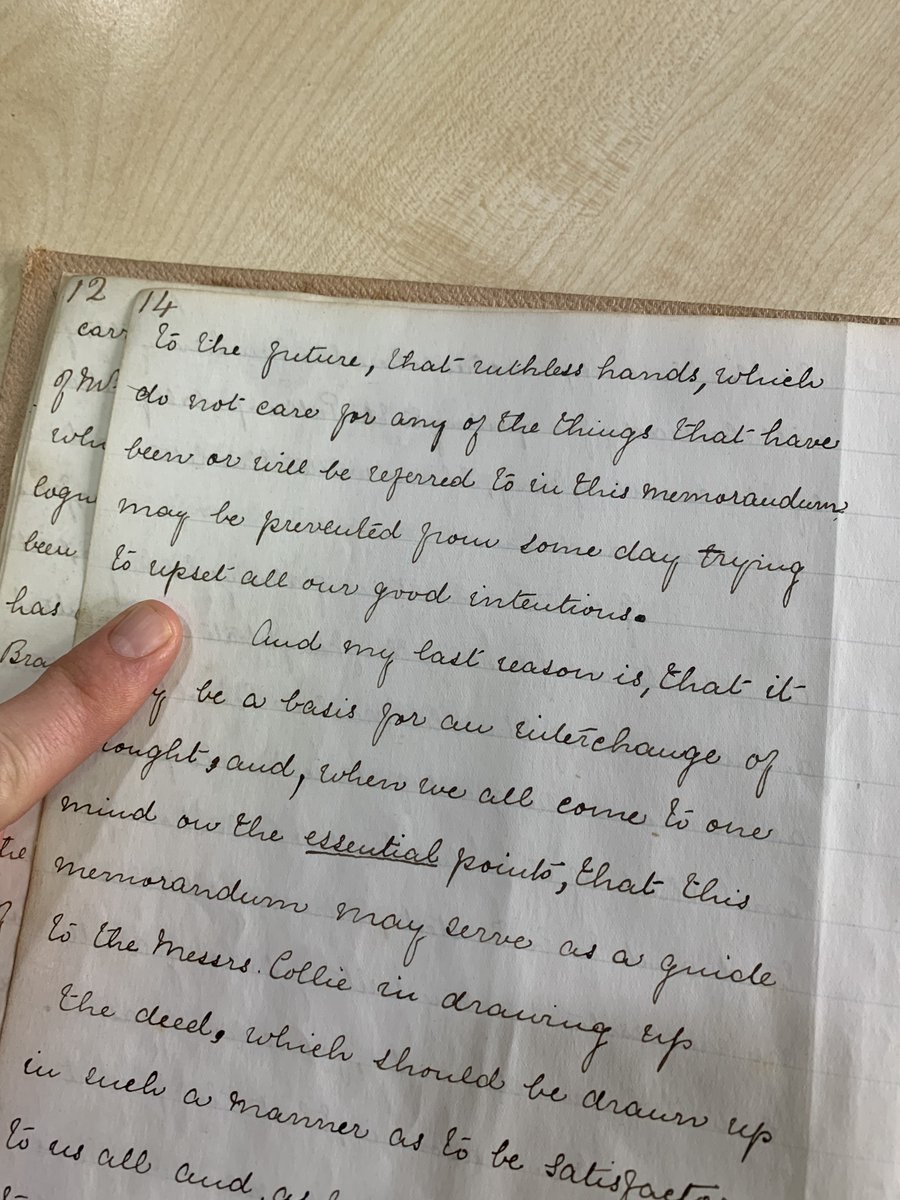 12
of
been
has
14
to the future, that ruthless hands, which
do not care for any of the things that have
been or will be referred to in this memorandum,
may be prevented from some day trying
to upset all our good intentions.
And my last reason is, that it
be a basis for an interchange of
and, when we all come to one
mind on the essential points, that this
memorandum may serve as a guide
to the Messrs. Collie in drawing up
the deed, which should be drawn up
in such a manner as to be
to us all and,